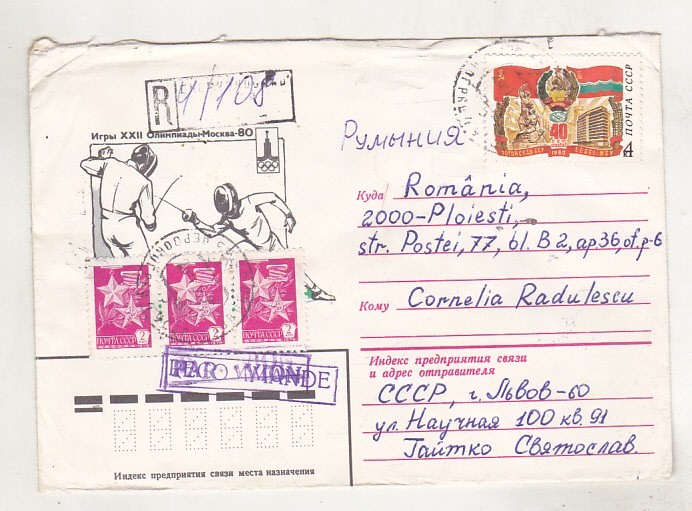 R 4/108
Игры XXII Олимпиады·Москва-80
ПОЧТА СССР
40
1980
4
РУМЫНИЯ
Куда România,
2000-Ploiesti,
str. Postei, 77, bl. B2, ap 36, of. p-6
Кому Cornelia Radulescu
ПОЧТА СССР 2
ПОЧТА СССР 2
ПОЧТА СССР 2
Индекс предприятия связи
и адрес отправителя
СССР, г. Львов-60
ул. Научная 100 кв. 91
Гайтко Святослав.
Индекс предприятия связи места назначения